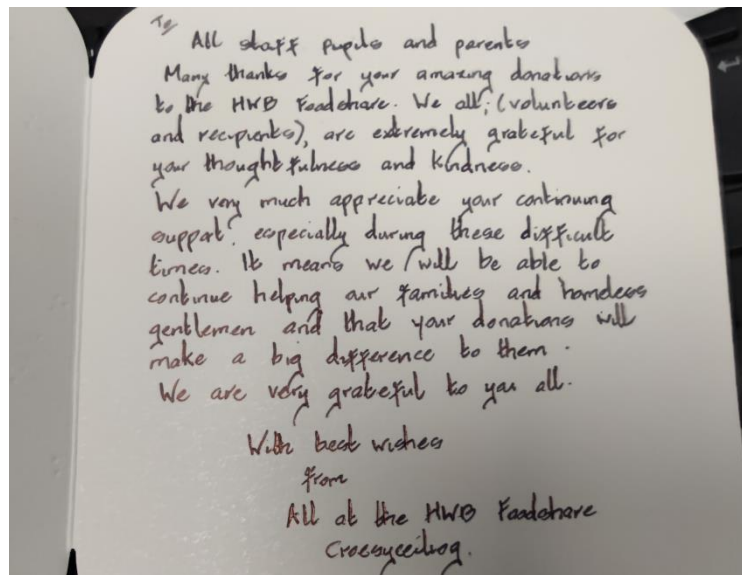 To
All staff pupils and parents
Many thanks for your amazing donations
to the HWB Foodshare. We all, (volunteers
and recipients), are extremely grateful for
your thoughtfulness and kindness.
We very much appreciate your continuing
support, especially during these difficult
times. It means we will be able to
continue helping our families and homeless
gentlemen and that your donations will
make a big difference to them.
We are very grateful to you all.
With best wishes
from
All at the HWB Foodshare
Croesyceiliog.